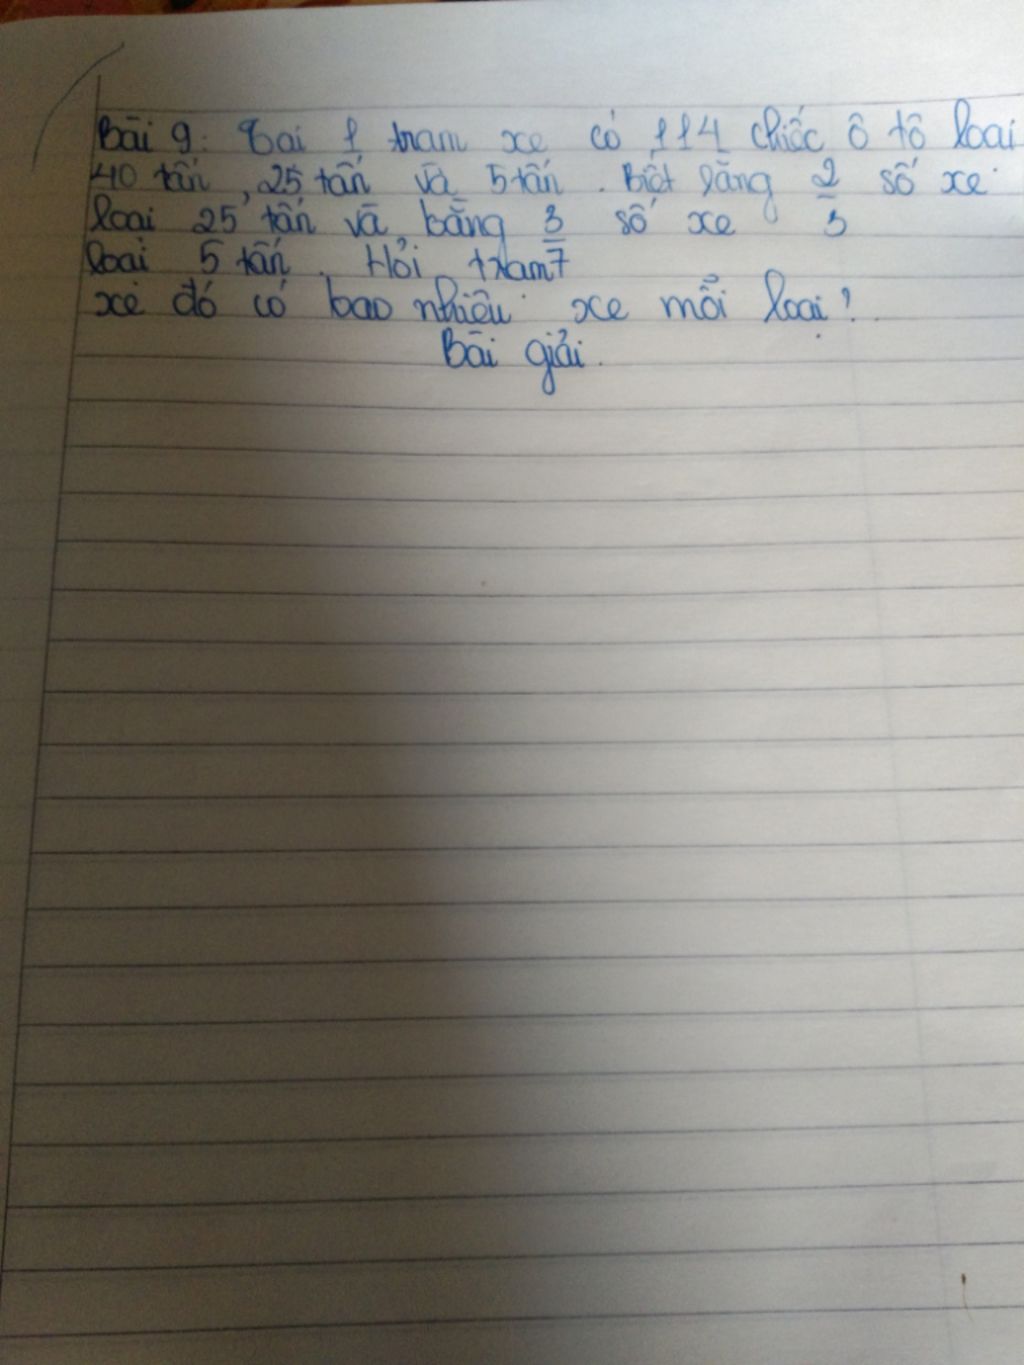 Bài 9: Tại 1 tram xe có 114 chiếc ô tô loai
40 tấn, 25 tấn và 5 tấn. Biết rằng 2/3 số xe
loai 25 tấn và bằng 3/7 số xe
loai 5 tấn. Hỏi tram
xe đó có bao nhiêu xe mỗi loại?
Bài giải.